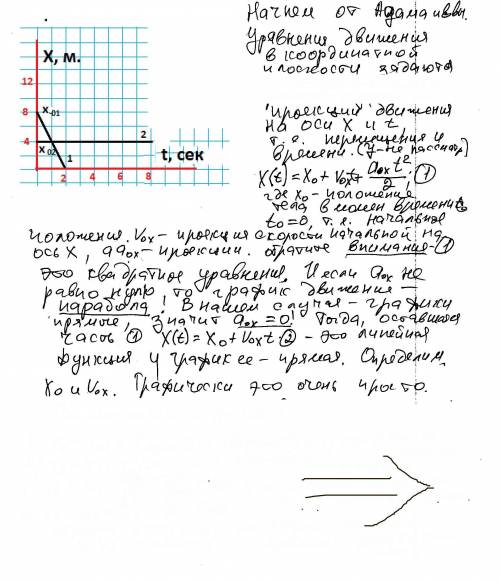 Начнем от Адама и Евы.
Уравнения движения
в координатной
плоскости задаются
X, м.
12
8
x-01
4
x 02
2
1
t, сек
2 4 6 8
"проекций" движения
на оси X и t,
т.е. перемещения и
времени. (y-не рассматр)
X(t)=X₀+V₀ₓt+a₀ₓt²/2, ①
где x₀ - положение
тела в момен времени
t₀=0, т.е. начальное
положения. V₀ₓ - проекция скорости начальной на
ось X, а a₀ₓ - проекции. обратите внимание - ①
это квадратное уравнения. И если a₀ₓ не
равно нулю, то график движения -
парабола! В нашем случая - графики
прямые, значит a₀ₓ=0! Тогда, оставшаяся
часть ① X(t)=X₀+V₀ₓt ② - это линейная
функция и график ее - прямая. Определим
X₀ и V₀ₓ. Графически это очень просто.